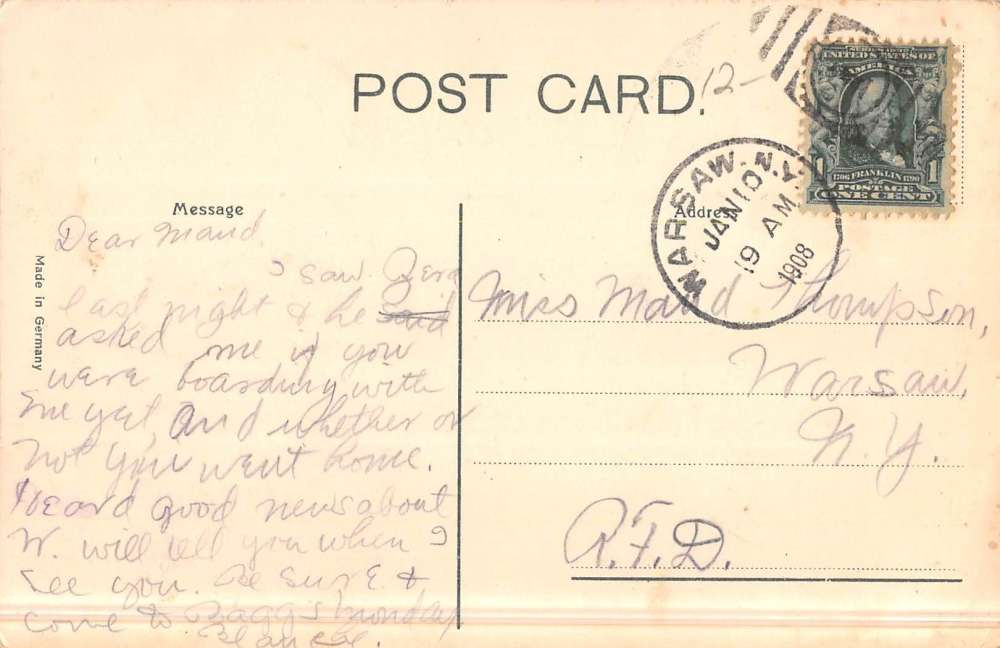 POST CARD.
12-
SERIES 1902
UNITED STATES OF
AMERICA
1 1
1706 FRANKLIN 1790
POSTAGE
ONE CENT
WARSAW. N.Y.
JAN 10
19 AM
1908
Message
Address
Made in Germany
Dear Maud.
I saw
last night & he said
asked me if you
were boarding with
me yet, and whether or
not you went home.
Heard good news about
W. will tell you when I
see you. Be sure &
come to Bagg's Monday
Blanche.
Miss Maud Thompson,
Warsaw,
N.Y.
R.F.D.